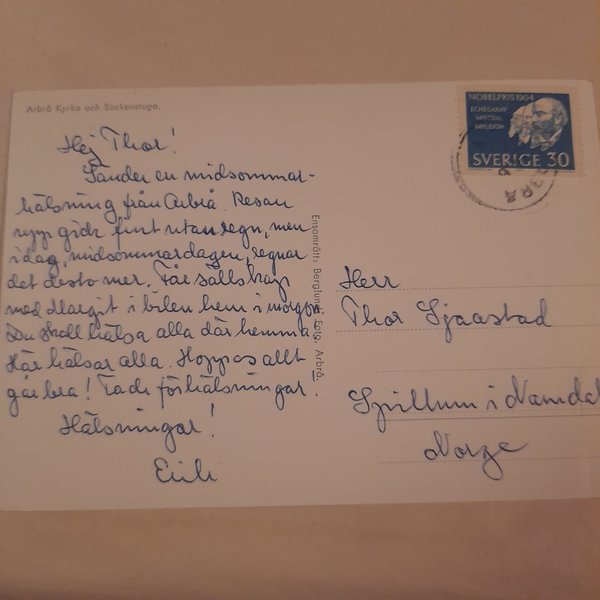 Arbrå Kyrka och Sockenstuga.
NOBELPRIS 1904
ECHEGARAY
MISTRAL
RAYLEIGH
SVERIGE 30
Hej Thor!
Sänder en midsommar-
hälsning från Arbrå. Resan
upp gick fint utan regn, men
idag, midsommardagen, regnar
det desto mer. Får sällskap
med Margit i bilen hem i morgon
Du skall hälsa alla där hemma
Här hälsar alla. Hoppas allt
går bra! Tack för hälsningar.
Hälsningar!
Erik
Ensamrätt: Berglunds Foto, Arbrå.
Herr
Thor Sjaastad
Spillum i Namdal
Norge